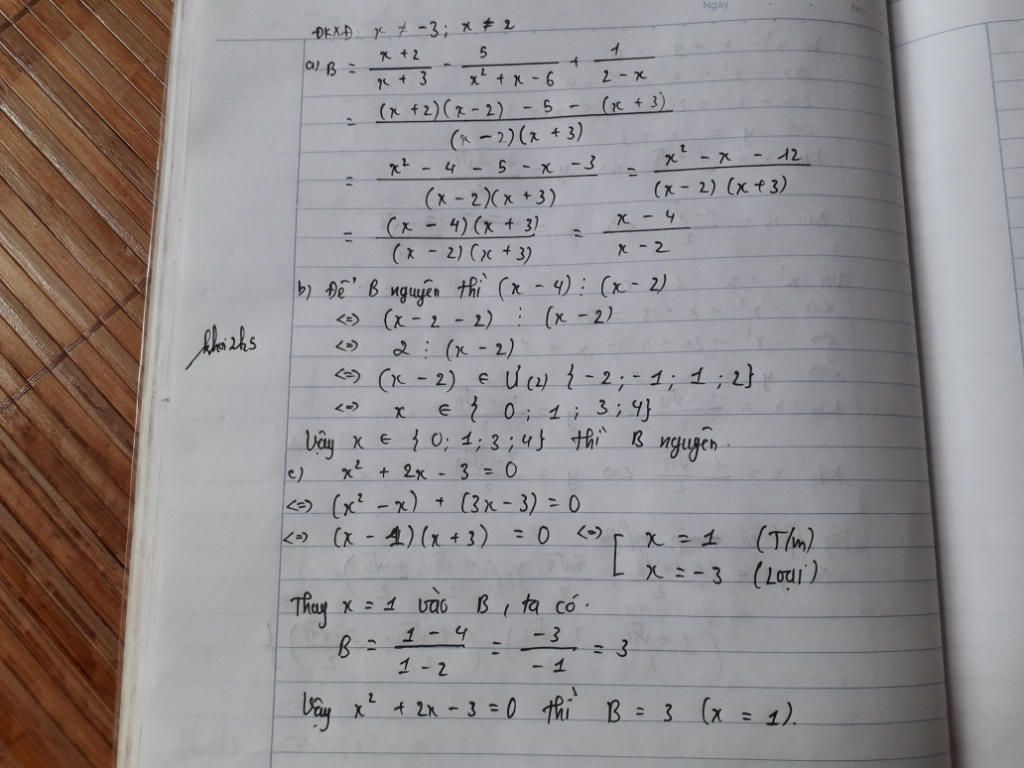 Ngày
No
ĐKXĐ: x ≠ -3; x ≠ 2
a) B = \frac{x + 2}{x + 3} - \frac{5}{x² + x - 6} + \frac{1}{2 - x}
= \frac{(x + 2)(x - 2) - 5 - (x + 3)}{(x - 2)(x + 3)}
= \frac{x² - 4 - 5 - x - 3}{(x - 2)(x + 3)} = \frac{x² - x - 12}{(x - 2)(x + 3)}
= \frac{(x - 4)(x + 3)}{(x - 2)(x + 3)} = \frac{x - 4}{x - 2}
b) Để B nguyên thì (x - 4) ⋮ (x - 2)
<=> (x - 2 - 2) ⋮ (x - 2)
khoi2k5
<=> 2 ⋮ (x - 2)
<=> (x - 2) ∈ Ư(2) {-2; -1; 1; 2}
<=> x ∈ {0; 1; 3; 4}
Vậy x ∈ {0; 1; 3; 4} thì B nguyên.
c) x² + 2x - 3 = 0
<=> (x² - x) + (3x - 3) = 0
<=> (x - 1)(x + 3) = 0 <=> [ x = 1 (T/m)
x = -3 (Loại)
Thay x = 1 vào B, ta có.
B = \frac{1 - 4}{1 - 2} = \frac{-3}{-1} = 3
Vậy x² + 2x - 3 = 0 thì B = 3 (x = 1).